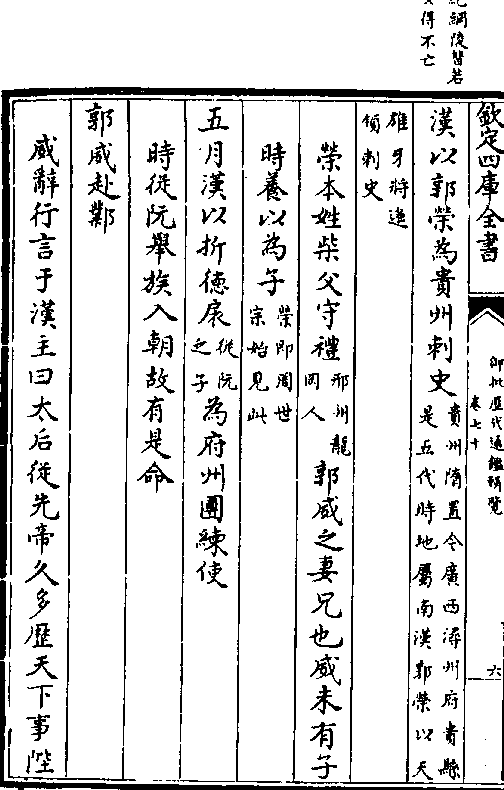 綱陵替若
得不亡
欽定四庫全書
御批歷代通鑑輯覽
卷七十
六
漢以郭榮為貴州刺史
貴州隋置今廣西潯州府貴縣
是五代時地屬南漢郭榮以天
雄牙將遙
領刺史
榮本姓柴父守禮
邢州龍
岡人
郭威之妻兄也威未有子
時養以為子
榮即周世
宗始見此
五月漢以折德扆
從阮
之子
為府州團練使
時從阮舉族入朝故有是命
郭威赴鄴
威辭行言于漢主曰太后從先帝久多歷天下事陛